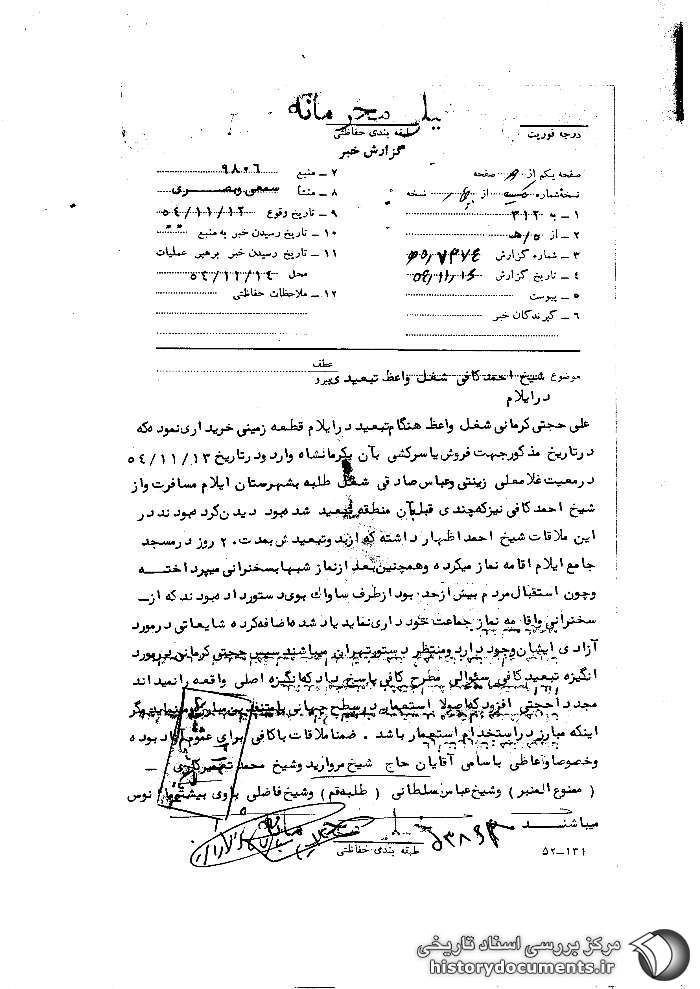 خیلی محرمانه
درجه فوریت
طبقه بندی حفاظتی
گزارش خبر
صفحه یکم از صفحه
نسخهٔ شماره از نسخه
۱ ـ به ۳۱۲
۲ ـ از ۵/هـ
۳ ـ شماره گزارش
۴ ـ تاریخ گزارش
۵ ـ پیوست
۶ ـ گیرندگان خبر
۷ ـ منبع ۹۸۰۶
۸ ـ منشأ سمعی وبصری
۹ ـ تاریخ وقوع ۵۴/۱۱/۱۳
۱۰ ـ تاریخ رسیدن خبر به منبع
۱۱ ـ تاریخ رسیدن خبر برهبر عملیات
محل ۵۴/۱۱/۱۴
۱۲ ـ ملاحظات حفاظتی
موضوع شیخ احمد کافی شغل واعظ تبعیدی
عطف
پیرو
درایلام
علی حجتی کرمانی شغل واعظ هنگام تبعید درایلام قطعه زمینی خریداری نموده که
درتاریخ مذکور جهت فروش یاسرکشی بآن بکرمانشاه وارد ودرتاریخ ۵۴/۱۱/۱۳
درمعیت غلامعلی زینتی وعباس صادقی شغل طلبه بشهرستان ایلام مسافرت واز
شیخ احمد کافی نیزکه چندی قبل بآن منطقه تبعید شده بود دیدن کرده بودند در
این ملاقات شیخ احمد اظهار داشته که ازبدوتبعیدش بمدت ۲۰ روز درمسجد
جامع ایلام اقامه نماز میکرده وهمچنین بعد ازنماز شبها بسخنرانی میپرداخته
وچون استقبال مردم بیش ازحد بود ازطرف ساواك بوی دستور داده بودند که از ـ
سخنرانی واقامه نماز جماعت خودداری نماید یاد شده اضافه کرده شایعاتی درمورد
آزادی ایشان وجود دارد ومنتظر دستورتهران میباشند سپس حجتی کرمانی درمورد
انگیزه تبعید کافی سؤالی مطرح کافی پاسخ داد که انگیزه اصلی واقعه رانمیداند
مجددا حجتی افزود که اصولا استعمار درسطح جهانی با متنفذین مبارزه مینماید مگر
اینکه مبارز دراستخدام استعمار باشد . ضمنا ملاقات باکافی برای عموم آزاد بوده
وخصوصا وعاظی باسامی آقایان حاج شیخ مروارید وشیخ محمد ـ
( ممنوع المنبر ) وشیخ عباس سلطانی ( طلبه قم ) وشیخ فاضلی باوی بیشتر مانوس
میباشند
خیلی محرمانه
طبقه بندی حفاظتی
۵۲ــ۱۳۱
مرکز بررسی اسناد تاریخی
historydocuments.ir